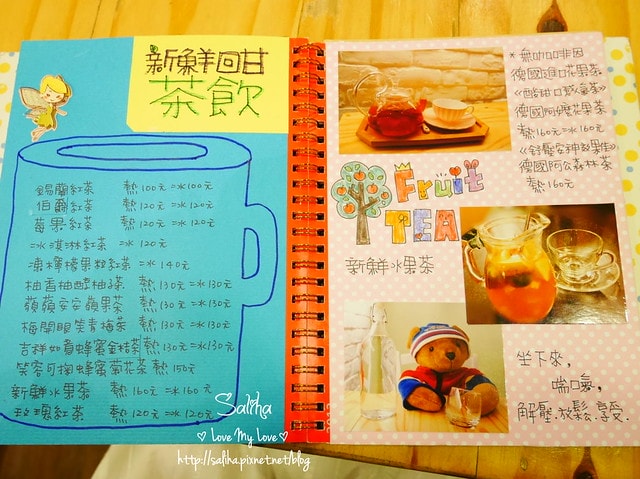 新鮮回甘
茶飲
錫蘭紅茶 熱100元=冰100元
伯爵紅茶 熱120元=冰120元
莓果紅茶 熱120元=冰120元
冰淇淋紅茶 =冰120元
凍檸檬果粒紅茶 =冰140元
柚香柚醺柚子茶 熱130元=冰130元
蘋蘋安安蘋果茶 熱130元=冰130元
梅開眼笑青梅茶 熱130元=冰130元
吉祥如意蜂蜜金桔茶 熱130元=冰130元
笑容可掬蜂蜜菊花茶 熱150元
新鮮水果茶 熱160元=冰160元
玫瑰紅茶 熱120元=冰120元
*無咖啡因
德國進口花果茶
德國阿爾花果茶
熱160元=冰160元
德國阿公森林茶
熱160元
Fruit
TEA
新鮮水果茶
坐下來,
喘口氣,
解壓.放鬆.享受.
Saliha
Love My Love
http://saliha.pixnet.net/blog